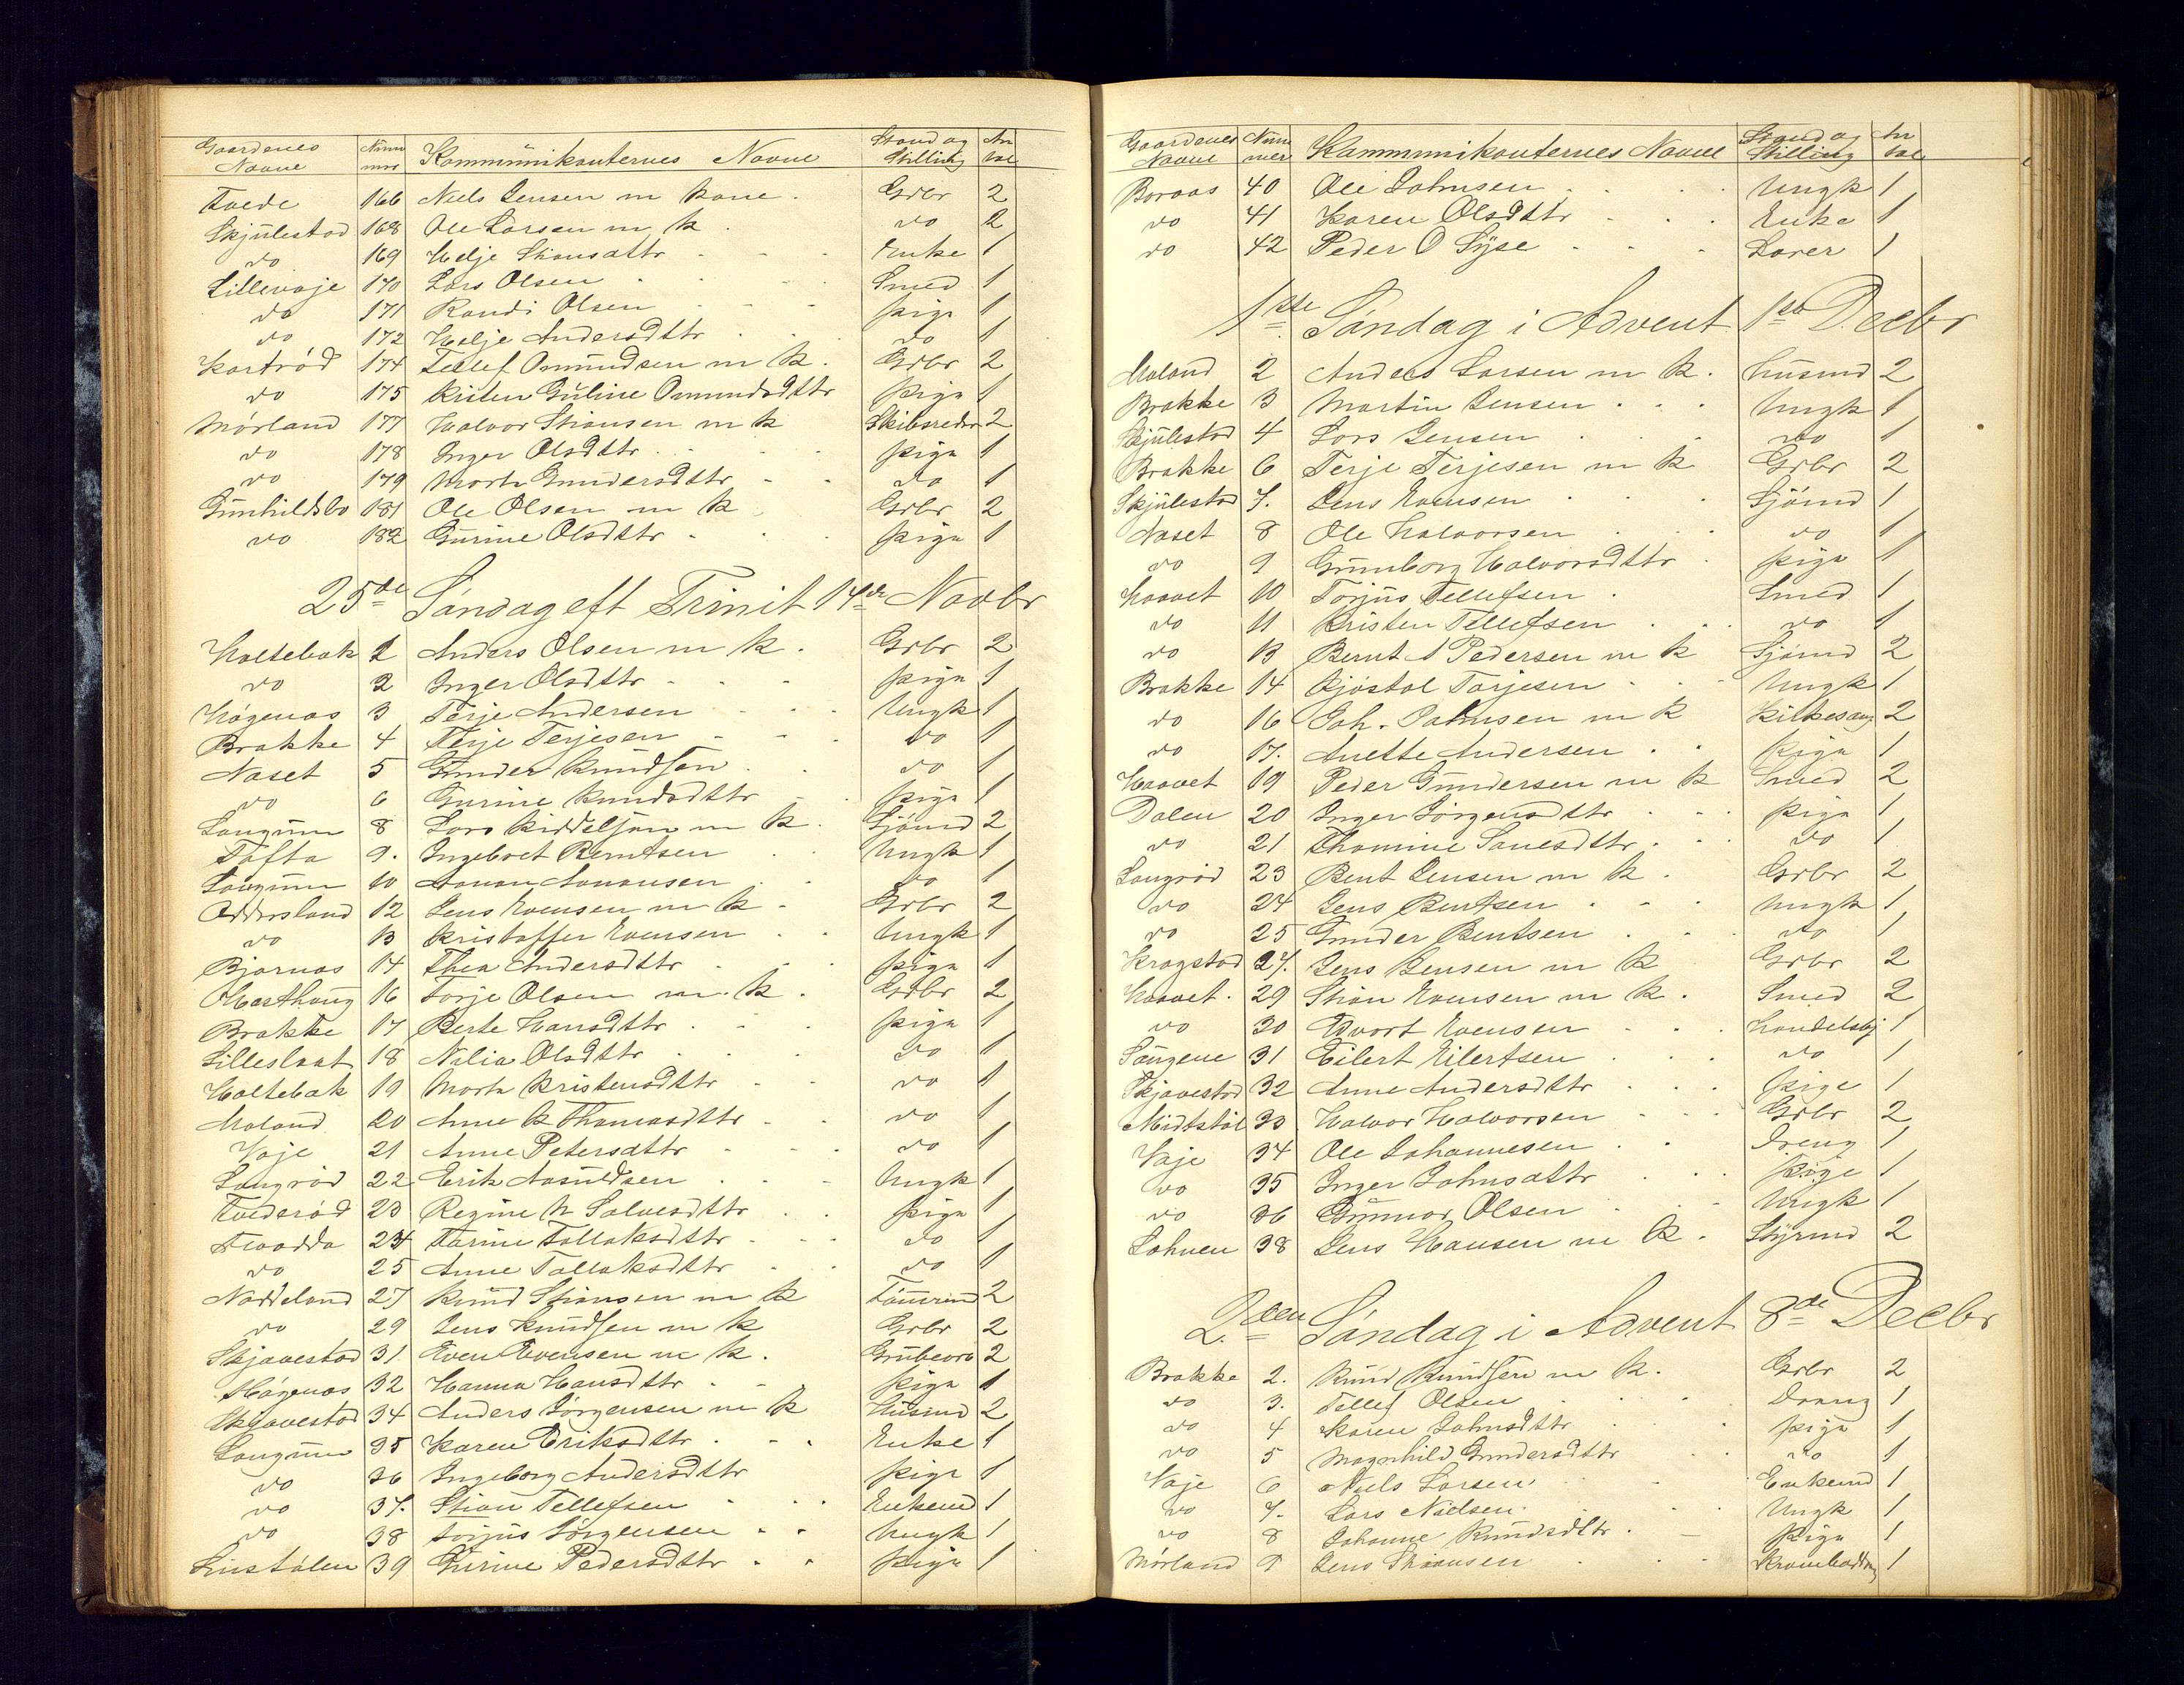 Gaardenes Navne Num mer Kommunikanternes Navne Stand og Stilling An tal
Tvede 166 Niels Jensen m kone Grbr 2
Skjulestad 168 Ole Larsen m k do 2
do 169 Helje Stiansdttr Enke 1
Lillevaje 170 Lars Olsen Smed 1
do 171 Randi Olsen pige 1
do 172 Helje Andersdttr do 1
174 Tellef Omundsen m k Grbr 2
do 175 Kristen Guline Omundsdttr pige 1
Mørland 177 Halvor Stiansen m k Skibsreder 2
do 178 Inger Olsdttr pige 1
do 179 Marth Gundersdttr do 1
Gunhildsbo 181 Ole Olsen m k Grbr 2
do 182 Gurine Olsdttr pige 1
25de Søndag eft Trinit 14de Novbr
Holtebak 1 Anders Olsen m k Grbr 2
do 2 Inger Olsdttr pige 1
Høgenas 3 Terje Andersen Ungk 1
Brakke 4 Terje Terjesen do 1
Naset 5 Gunder Knudsen do 1
do 6 Gurine Knudsdttr pige 1
Langum 8 Lars Kiddelsen m k Sjømd 2
Tofta 9. Ingebret Berntsen Ungk 1
Langum 10 Aanon Aanonsen do 1
Oddersland 12 Jens Evensen m k Grbr 2
do 13 Kristoffer Evensen Ungk 1
Bjornas 14 Thea Andersdttr pige 1
16 Torje Olsen m k Grbr 2
Brakke 17 Berte Hansdttr pige 1
Lilleslaat 18 Nilia Olsdttr do 1
Holtebak 19 Marth Kristensdttr do 1
Moland 20 Anne K Thomasdttr do 1
Vaje 21 Anne Petersdttr do 1
Langrød 22 Erik Aasuldsen Ungk 1
Tvederød 23 Regine H Salvesdttr pige 1
24 Tarine Tallaksdttr do 1
do 25 Anne Tallaksdttr do 1
Naddeland 27 Knud Stiansen m k Tømrmd 2
do 29 Jens Knudsen m k Grbr 2
Skjavestad 31 Even Evensen m k Grubearb 2
Høgenas 32 Hanna Hansdttr pige 1
Skjavestad 34 Anders Jørgensen m k Husmd 2
Langum 35 Karen Eriksdttr Enke 1
do 36 Ingeborg Andersdttr pige 1
do 37. Stian Tellefsen Enkemd 1
do 38 Torjus Jørgensen Ungk 1
Linstølen 39 Gurine Pedersdttr pige 1
Gaardenes Navne Num mer Kammunikanternes Navne Stand og Stilling An tal
Boraas 40 Ole Johnsen Ungk 1
do 41 Karen Olsdttr Enke 1
do 42 Peder O Syse Larer 1
1ste Søndag i Advent 1ste Decbr
Moland 2 Anders Larsen m k. Husmd 2
Brakke 3 Martin Jensen Ungk 1
Skjulestad 4 Lars Jensen do 1
Brakke 6 Terje Terjesen m k Grbr 2
Skjulestad 7. Jens Evensen Sjømd 1
Naset 8 Ole Halvorsen do 1
do 9 Gunborg Halvorsdttr pige 1
Haavet 10 Torjus Tellefsen Smed 1
do 11 Kristen Tellefsen do 1
do 13 Bernt A Pedersen m k Sjømd 2
Brakke 14 Kjøstol Tarjesen Ungk 1
do 16 Joh. Johnsen m k Kirkesang 2
do 17. Anette Andersen pige 1
Haavet 19 Peder Gundersen m k Smed 2
Dalen 20 Inger Jørgensdttr pige 1
do 21 Thomine Sanesdttr do 1
Langrød 23 Bent Jensen m k Grbr 2
do 24 Jens Bentsen Ungk 1
do 25 Gunder Bentsen do 1
Kragstad 27. Jens Jensen m k Grbr 2
Haavet. 29 Stian Evensen m k Smed 2
do 30 Edvart Evensen Handelsbj 1
Langene 31 Eilert Eilertsen do 1
Skjavestad 32 Anne Andersdttr pige 1
Midtstøl 33 Halvor Halvorsen Grbr 2
Vaje 34 Ole Johannesen Dreng 1
do 35 Inger Johnsdttr pige 1
do 36 Gunnar Olsen Ungk 1
Lohnen 38 Jens Hansen m k Styrmd 2
2den Søndag i Advent 8de Decbr
Brakke 2. Knud Knudsen m k. Grbr 2
do 3. Tellef Olsen Dreng 1
do 4 Karen Johnsdttr pige 1
do 5 Magnhild Gundersdttr do 1
Vaje 6 Niels Larsen Enkemd 1
do 7. Lars Nielsen Ungk 1
do 8 Johanne Knudsdttr pige 1
Mørland 9 Jens Stiansen 1